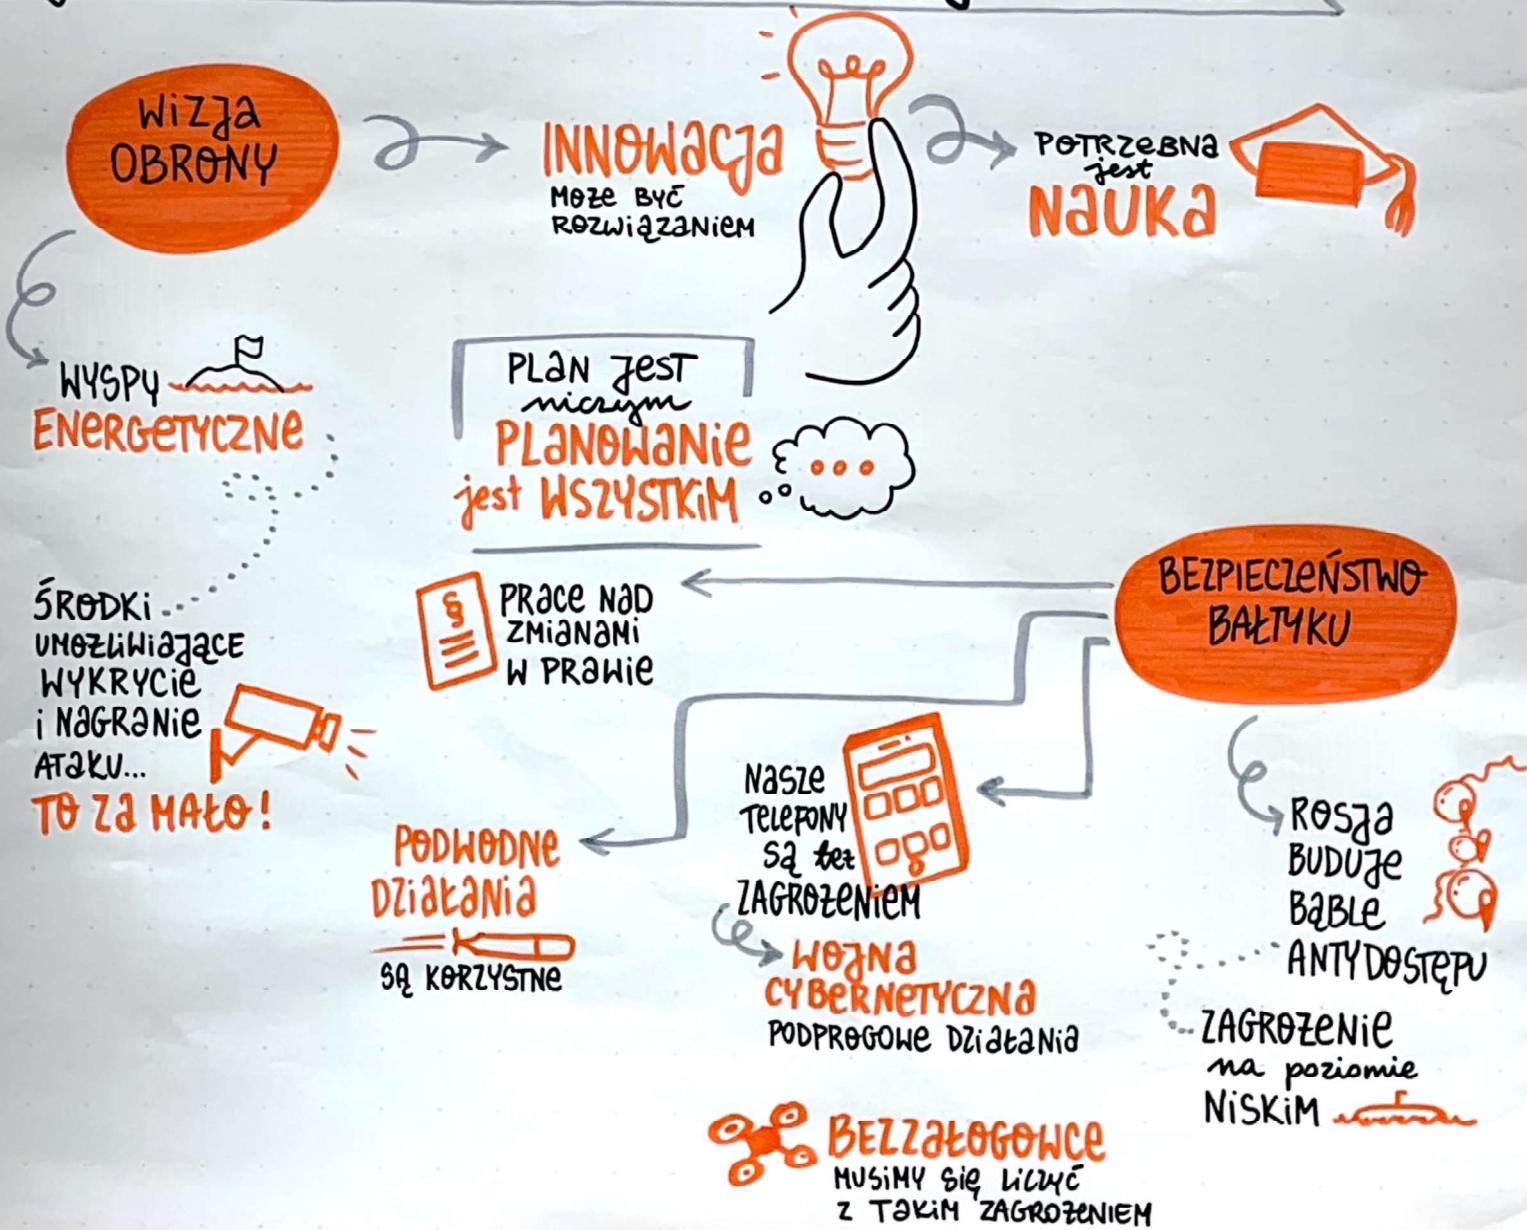 WIZJA
OBRONY
INNOWACJA
MOŻE BYĆ
ROZWIĄZANIEM
POTRZEBNA
jest
NAUKA
WYSPY
ENERGETYCZNE
PLAN JEST
niczym
PLANOWANIE
jest WSZYSTKIM
ŚRODKI
UMOŻLIWIAJĄCE
WYKRYCIE
i NAGRANIE
ATAKU...
TO ZA MAŁO!
BEZPIECZEŃSTWO
BAŁTYKU
§
PRACE NAD
ZMIANAMI
W PRAWIE
PODWODNE
DZIAŁANIA
SĄ KORZYSTNE
NASZE
TELEFONY
SĄ też
ZAGROŻENIEM
WOJNA
CYBERNETYCZNA
PODPROGOWE DZIAŁANIA
ROSJA
BUDUJE
BĄBLE
ANTYDOSTĘPU
ZAGROŻENIE
na poziomie
NISKIM
BEZZAŁOGOWCE
MUSIMY SIĘ LICZYĆ
Z TAKIM ZAGROŻENIEM